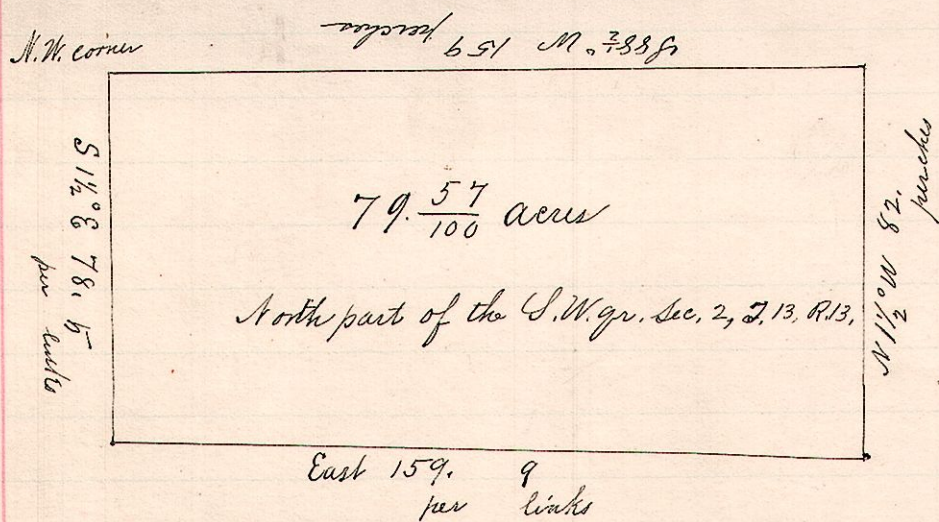 N.W. corner
S 88½° W 159
perches
S 1½° E 78. 5
per links
79. 57/100 acres
North part of the S.W. qr. Sec. 2, T. 13, R. 13,
N 1½° W 82.
perches
East 159. 9
per links